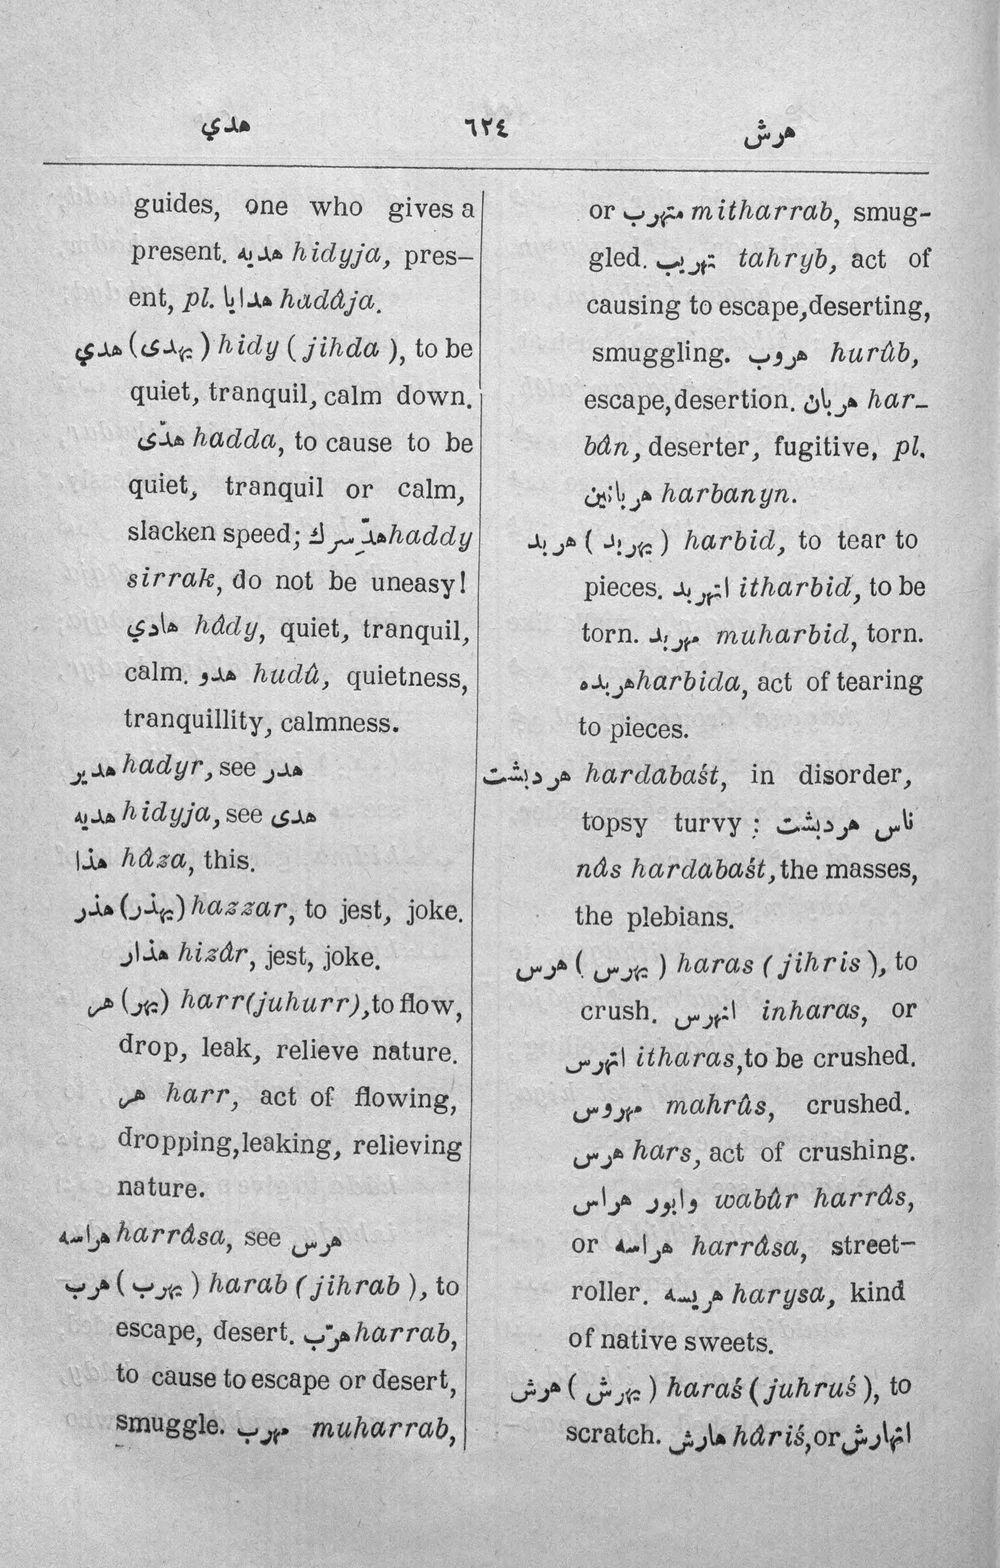 هدي ٦٢٤ هرش
guides, one who gives a
present. هديه hidyja, pres-
ent, pl. هدايا hadâja.
هدي (يهدى) hidy (jihda), to be
quiet, tranquil, calm down.
هدّى hadda, to cause to be
quiet, tranquil or calm,
slacken speed; هدّ سرك haddy
sirrak, do not be uneasy!
هادي hâdy, quiet, tranquil,
calm. هدو hudû, quietness,
tranquillity, calmness.
هدير hadyr, see هدر
هديه hidyja, see هدى
هذا hâza, this.
هذر (يهذر) hazzar, to jest, joke.
هذار hizâr, jest, joke.
هر (يهر) harr (juhurr), to flow,
drop, leak, relieve nature.
هر harr, act of flowing,
dropping, leaking, relieving
nature.
هراسه harrâsa, see هرس
هرب (يهرب) harab (jihrab), to
escape, desert. هرّب harrab,
to cause to escape or desert,
smuggle. مهرب muharrab,
or متهرب mitharrab, smug-
gled. تهريب tahryb, act of
causing to escape, deserting,
smuggling. هروب hurûb,
escape, desertion. هربان har-
bân, deserter, fugitive, pl.
هربانين harbanyn.
هربد (يهربد) harbid, to tear to
pieces. اتهربد itharbid, to be
torn. مهربد muharbid, torn.
هربده harbida, act of tearing
to pieces.
هردبشت hardabaśt, in disorder,
topsy turvy: ناس هردبشت
nâs hardabaśt, the masses,
the plebians.
هرس (يهرس) haras (jihris), to
crush. انهرس inharas, or
اتهرس itharas, to be crushed.
مهروس mahrûs, crushed.
هرس hars, act of crushing.
وابور هراس wabûr harrâs,
or هراسه harrâsa, street-
roller. هريسه harysa, kind
of native sweets.
هرش (يهرش) haraś (juhruś), to
scratch. هارش hâriś, or اتهارش